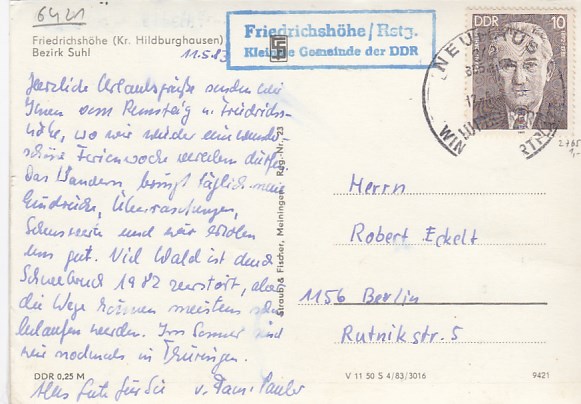 6421
Friedrichshöhe (Kr. Hildburghausen)
Bezirk Suhl
11.5.83
Friedrichshöhe/Rstg.
Kleinste Gemeinde der DDR
DDR 10
NEUHAUS
Herzliche Urlaubsgrüße senden wir
Ihnen vom Rennsteig u. Friedrichs-
höhe, wo wir wieder eine wunder
schöne Ferienwoche verleben dürfen
Das Wandern bringt täglich neue
Eindrücke, Überraschungen,
und wir erholen
uns gut. Viel Wald ist durch
Schneebruch 1982 zerstört, aber
die Wege können meistens schon
belaufen werden. Im Sommer sind
wir nochmals in Thüringen.
Alles Gute für Sie v. Fam. Pauler
Straub & Fischer, Meiningen Reg.-Nr. 723
Herrn
Robert Eckelt
1156 Berlin
Rutnikstr. 5
DDR 0,25 M
V 11 50 S 4/83/3016
9421